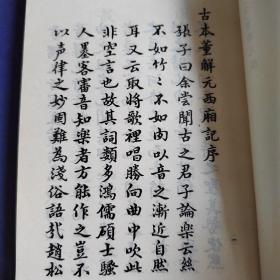 古本董解元西廂記序
張子曰余嘗聞古之君子論樂云絲
不如竹〻不如肉以音之漸近自然
耳又云取將歌裡唱勝向曲中吹此
非空言也故其詞類多鴻儒碩士騷
人墨客審音知樂者方能作之豈不
以声律之妙固難為淺俗語哉趙松